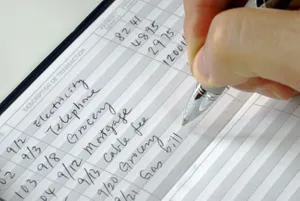 DESCRIPTION OF TRANSACTION
102 9/2 Electricity 82 41
103 9/3 Telephone 48 95
104 9/8 Grocery 29 75
9/12 Mortgage 1200
9/13 Cable fee
9/20 Grocery
9/21 Gas bill